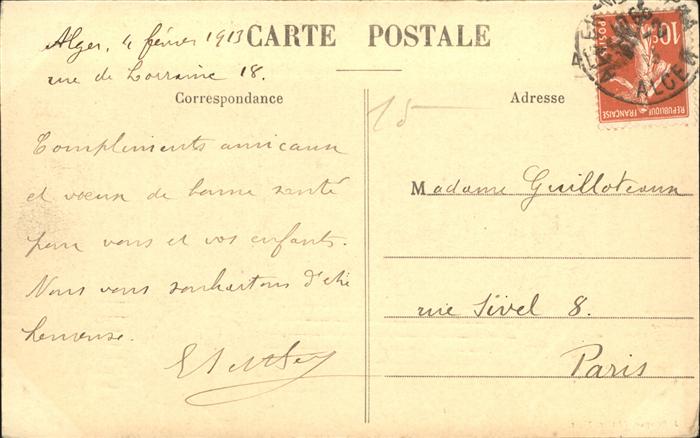 Alger, 4 février 1913
rue de Lorraine 18.
CARTE POSTALE
Correspondance
Compliments amicaux
et voeux de bonne santé
pour vous et vos enfants.
Nous vous souhaitons d'etre
heureuse.
15
Adresse
Madame Guilloteaux
rue Sivel 8.
Paris
POSTES
10c
REPUBLIQUE FRANÇAISE
ALGER